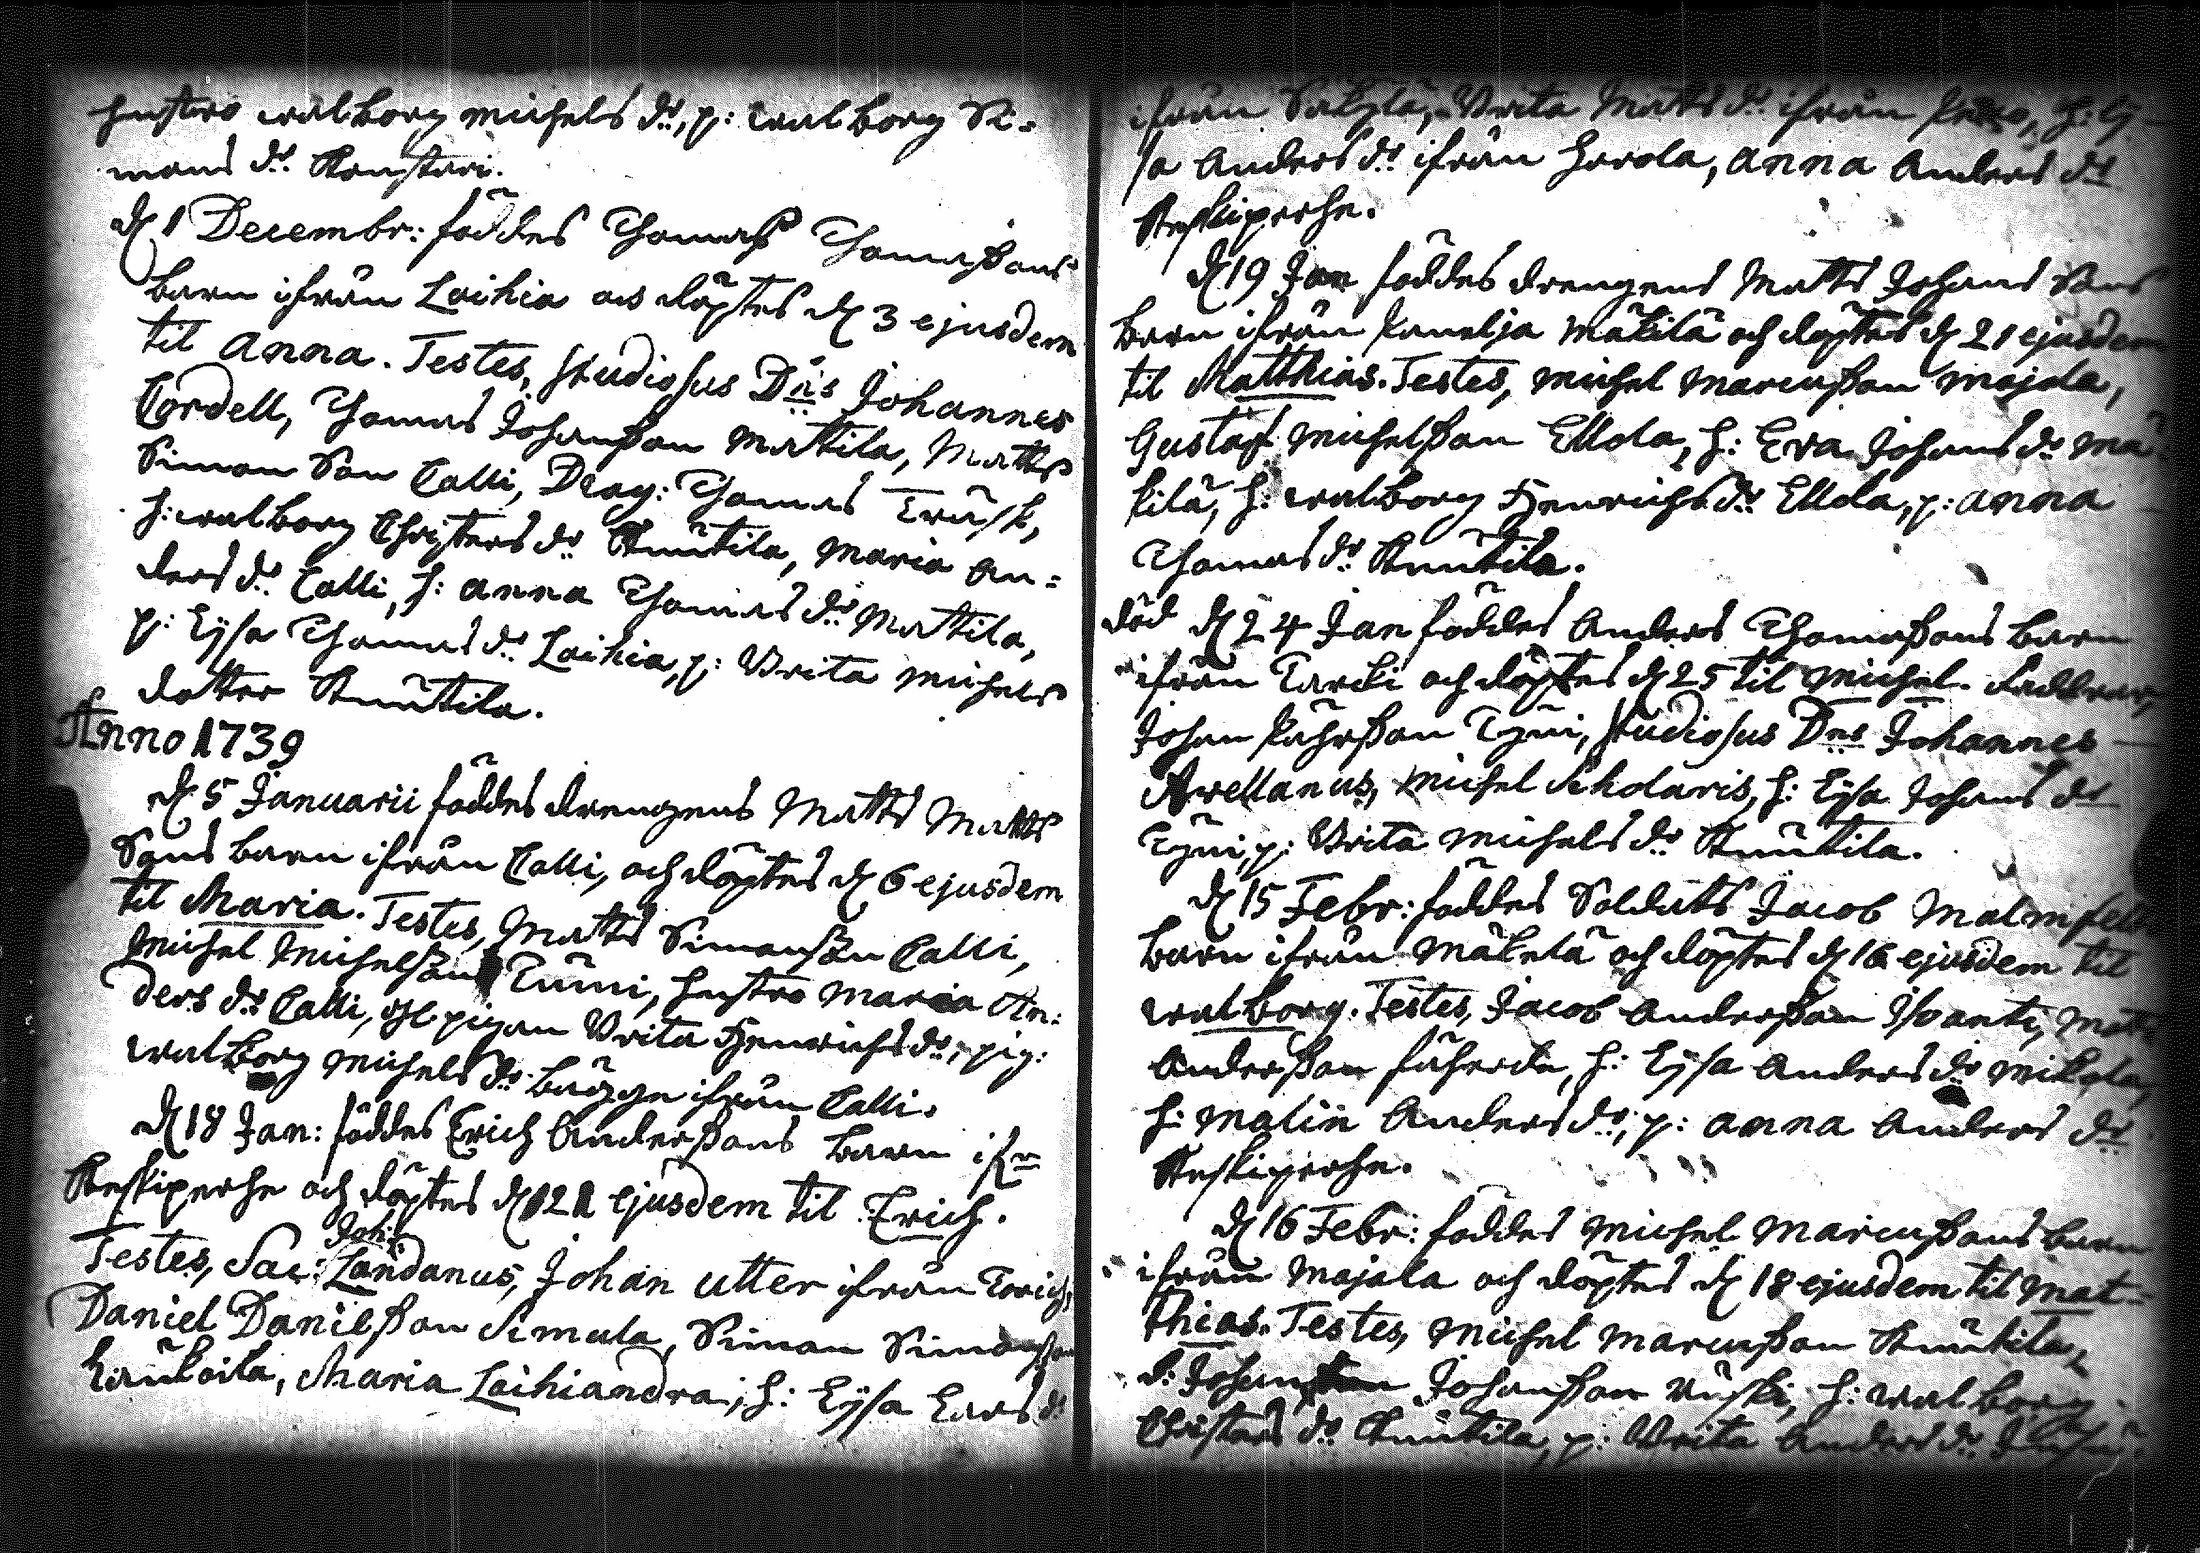 hustro walborg michels dr, p: walborg Si-
mons dr. Konstari.
d 1 Decembr: föddes Thomas Thomaßons
barn ifrån Laihia och döptes d 3 ejusdem
til Anna. Testes, Studiosus Dns Johannes
Cordell, Thomas Johanßon Mattila, Matts
Simon Son Calli, Drag: Thomas Träsk,
h: walborg Christers dr Knuutila, Maria An=
ders dr. Calli, h: Anna Thomas dr Mattila,
p: Lijsa Thomas dr Laihia, p: Brita Michels
dotter Knuutila.
Anno 1739
d 5 Januarii föddes drengens Matts Matts
Sons barn ifrån Calli, och döptes d 6 ejusdem
til Maria. Testes, Matts Simonson Calli,
Michel Michelson Tuomi, hustro Maria An:
ders dr Calli, pigan Brita Henrichs dr, pig:
walborg Michels dr bägge ifrån Calli.
d 18 Jan: föddes Erich Anderßons barn ifrn
Keskiperhe och döptes d 21 ejusdem til Erich.
Testes, Sac: Joh: Landanus, Johan utter ifrån
Daniel Danielßon Simula, Simon Simonßon
Maria Laihiandra, h: Lijsa Ers dr
ifrån Säkylä, Brita Matts dr. ifrån h: Lij-
sa Anders dr ifrån Herola, Anna Anders dr
Keskiperhe.
d 19 Jan föddes drengens Matts Johans Sons
barn ifrån Panelja Mäkilä och döptes d 21 ejusdem
til Matthias. Testes, Michel Marcußon Majala,
Gustaf Michelßon Ellola, h: Eva Johans dr Mä
kilä, h: walborg Henrichs dr Ellola, p: Anna
Thomas dr Knuutila.
död d 24 Jan föddes Anders Thomaßons barn
ifrån Tarcki och döptes d 25 til Michel. Faddrar,
Johan Pährßon Tyni, Studiosus Dns Johannes
Avellanus, Michel Scholaris, h: Lijsa Johans dr
Tyni, p: Brita Michels dr Knuutila.
d 15 Febr: föddes Soldats Jacob Malmfelt
barn ifrån Mäkelä och döptes d 16 ejusdem til
walborg. Testes, Jacob Anderßon Isoanti, Mats
Anderßon h: Lijsa Anders dr Mikola,
h: Malin Anders dr, p: Anna Anders dr
Keskiperhe.
d 16 Febr: föddes Michel Marcußons barn
ifrån Majala och döptes d 18 ejusdem til Mat-
thias. Testes, Michel Marcußon Knuutila,
d: Johan Johanßon h: walborg
Christers dr Knuutila, p: Brita Anders dr